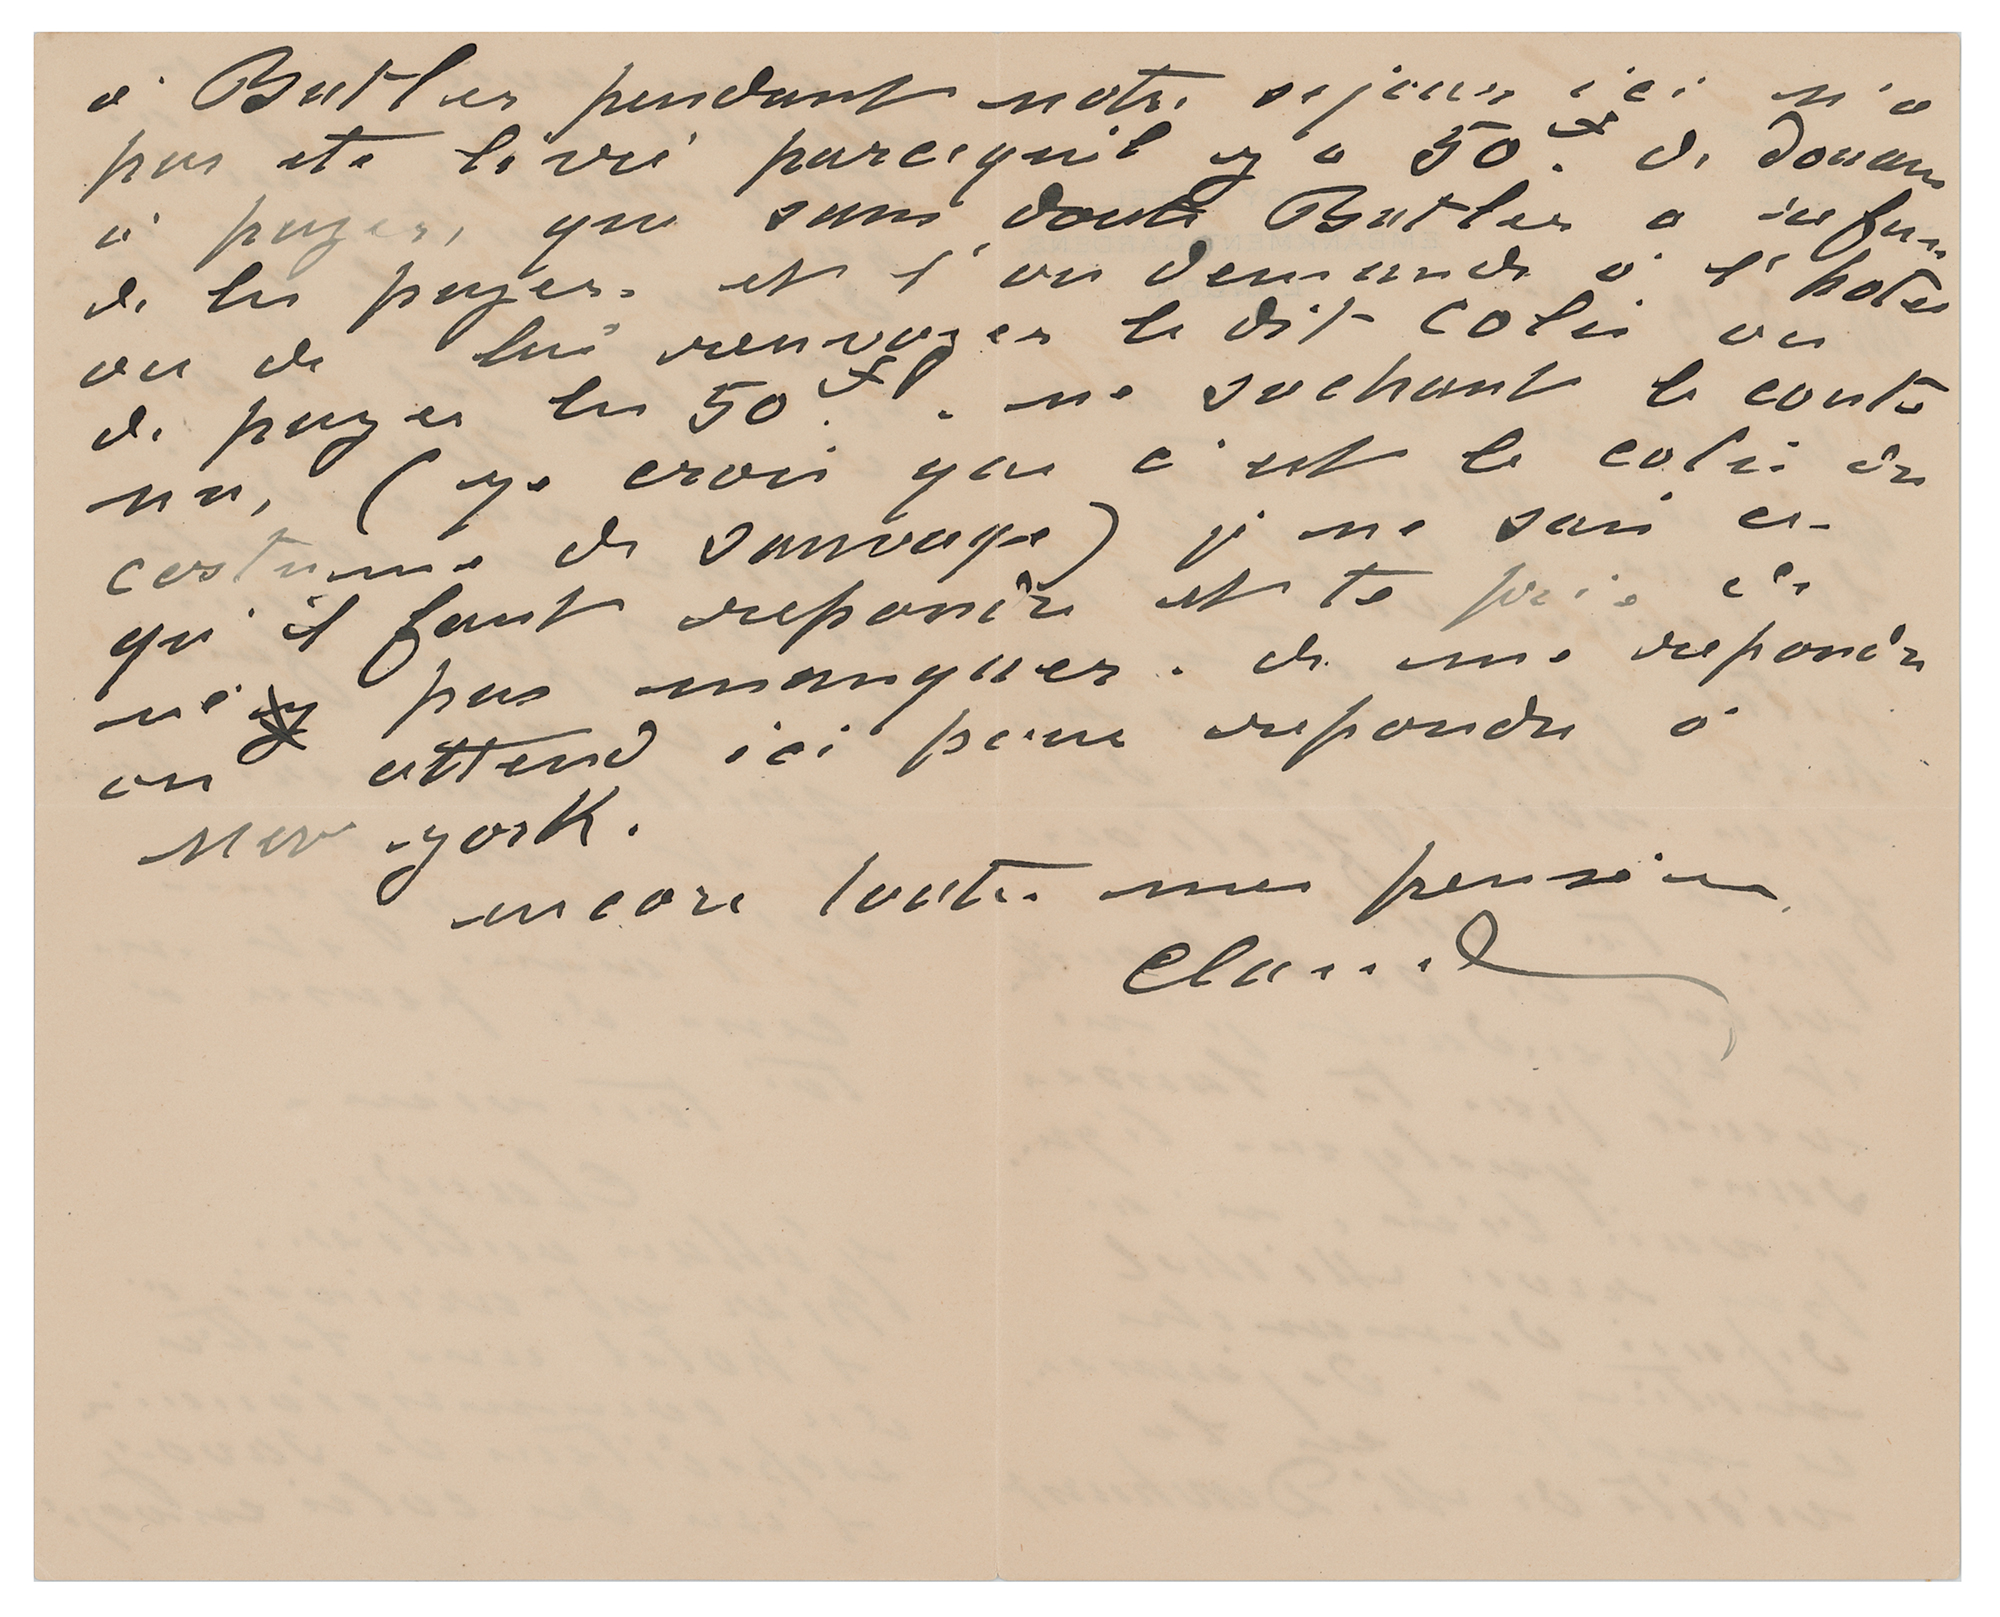 à Butler pendant notre sejour ici n'a
pas ete livré parcequil y a 50 f. de douane
à payer, que sans doute Butler a refusé
de les payer. et l'on demande à l'hotel
ou de lui renvoyer le dit colis ou
de payer les 50 f. ne sachant le conte
nu, (je crois que c'est le colis du
costume de sauvage) je ne sais ce
qu'il faut repondre et te prie de
ne pas manquer. de me repondre
on attend ici pour repondre à
New York.
encore toutes mes pensées
Claude